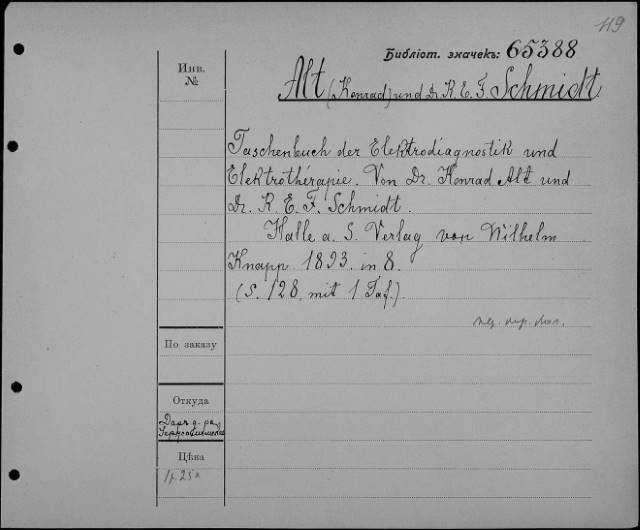 119
Библіот. значекъ: 65388
Инв.
№
Alt (Konrad) und Dr. R. E. F. Schmidt
Taschenbuch der Elektrodiagnostik und
Elektrothérapie. Von Dr. Konrad Alt und
Dr. R. E. F. Schmidt.
Halle a. S. Verlag von Wilhelm
Knapp. 1893. in 8.
(S. 128, mit 1 Taf.)
По заказу
Откуда
Даръ д-ра
Цѣна